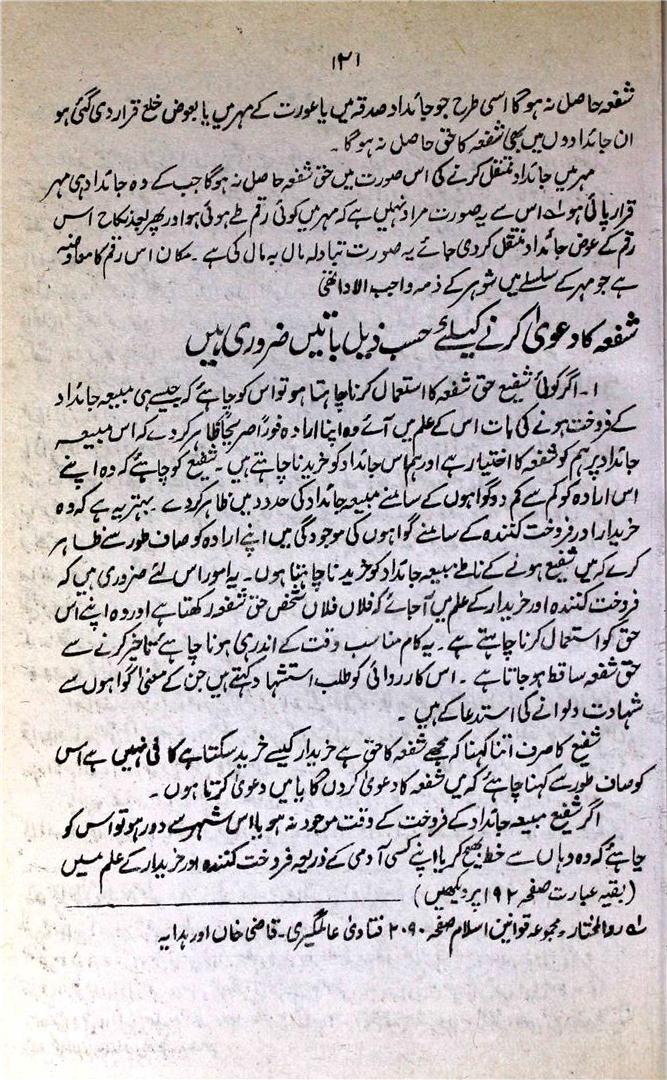 ۱۲۱
شفعہ حاصل نہ ہوگا اسی طرح جو جائداد صدقہ میں یا عورت کے مہر میں یا بعوض خلع قرار دی گئی ہو
ان جائدادوں میں بھی شفعہ کا حق حاصل نہ ہوگا ۔
مہر میں جائداد منتقل کرنے کی اس صورت میں حق شفعہ حاصل نہ ہوگا جب کے وہ جائداد ہی مہر
قرار پائی ہو لہ اس سے یہ صورت مراد نہیں ہے کہ مہر میں کوئی رقم طے ہوئی ہو اور پھر بعد نکاح اس
رقم کے عوض جائداد منتقل کردی جائے یہ صورت تبادلہ مال بہ مال کی ہے ۔ مکان اس رقم کا معاوضہ
ہے جو مہر کے سلسلے میں شوہر کے ذمہ واجب الادا تھی
شفعہ کا دعویٰ کرنے کیلئے حسب ذیل باتیں ضروری ہیں
۱ ۔ اگر کوئی شفیع حق شفعہ کا استعمال کرنا چاہتا ہو تو اس کو چاہئے کہ جیسے ہی مبیعہ جائداد
کے فروخت ہونے کی بات اس کے علم میں آئے وہ اپنا ارادہ فوراً صریحاً ظاہر کردے کہ اس مبیعہ
جائداد پر ہم کو شفعہ کا اختیار ہے اور ہم اس جائداد کو خریدنا چاہتے ہیں ۔ شفیع کو چاہئے کہ وہ اپنے
اس ارادہ کو کم سے کم دو گواہوں کے سامنے مبیعہ جائداد کی حدود میں ظاہر کردے ۔ بہتر یہ ہے کہ وہ
خریدار اور فروخت کنندہ کے سامنے گواہوں کی موجودگی میں اپنے ارادہ کو صاف طور سے ظاہر
کرے کہ میں شفیع ہونے کے ناطے مبیعہ جائداد کو خریدنا چاہتا ہوں ۔ یہ امور اس لئے ضروری ہیں کہ
فروخت کنندہ اور خریدار کے علم میں آجائے کہ فلاں فلاں شخص حق شفعہ رکھتا ہے اور وہ اپنے اس
حق کو استعمال کرنا چاہتے ہے ۔ یہ کام مناسب وقت کے اندر ہی ہونا چاہئے تاخیر کرنے سے
حق شفعہ ساقط ہوجاتا ہے ۔ اس کارروائی کو طلب استشہاد کہتے ہیں جن کے معنی گواہوں سے
شہادت دلوانے کی استدعا کے ہیں ۔
شفیع کا صرف اتنا کہنا کہ مجھے شفعہ کا حق ہے خریدار کیسے خرید سکتا ہے کافی نہیں ہے اس
کو صاف طور سے کہنا چاہئے کہ میں شفعہ کا دعویٰ کروں گا یا میں دعویٰ کرتا ہوں ۔
اگر شفیع مبیعہ جائداد کے فروخت کے وقت موجود نہ ہو یا اس شہر سے دور ہو تو اس کو
چاہئے کہ وہ وہاں سے خط بھیج کر یا اپنے کسی آدمی کے ذریعہ فروخت کنندہ اور خریدار کے علم میں
(بقیہ عبارت صفحہ ۱۹۲ پر دیکھیں)
لہ ردالمختار ۔ مجموعہ قوانین اسلام صفحہ ۲۰۹۰ فتاویٰ عالمگیری ۔ قاضی خاں اور ہدایہ